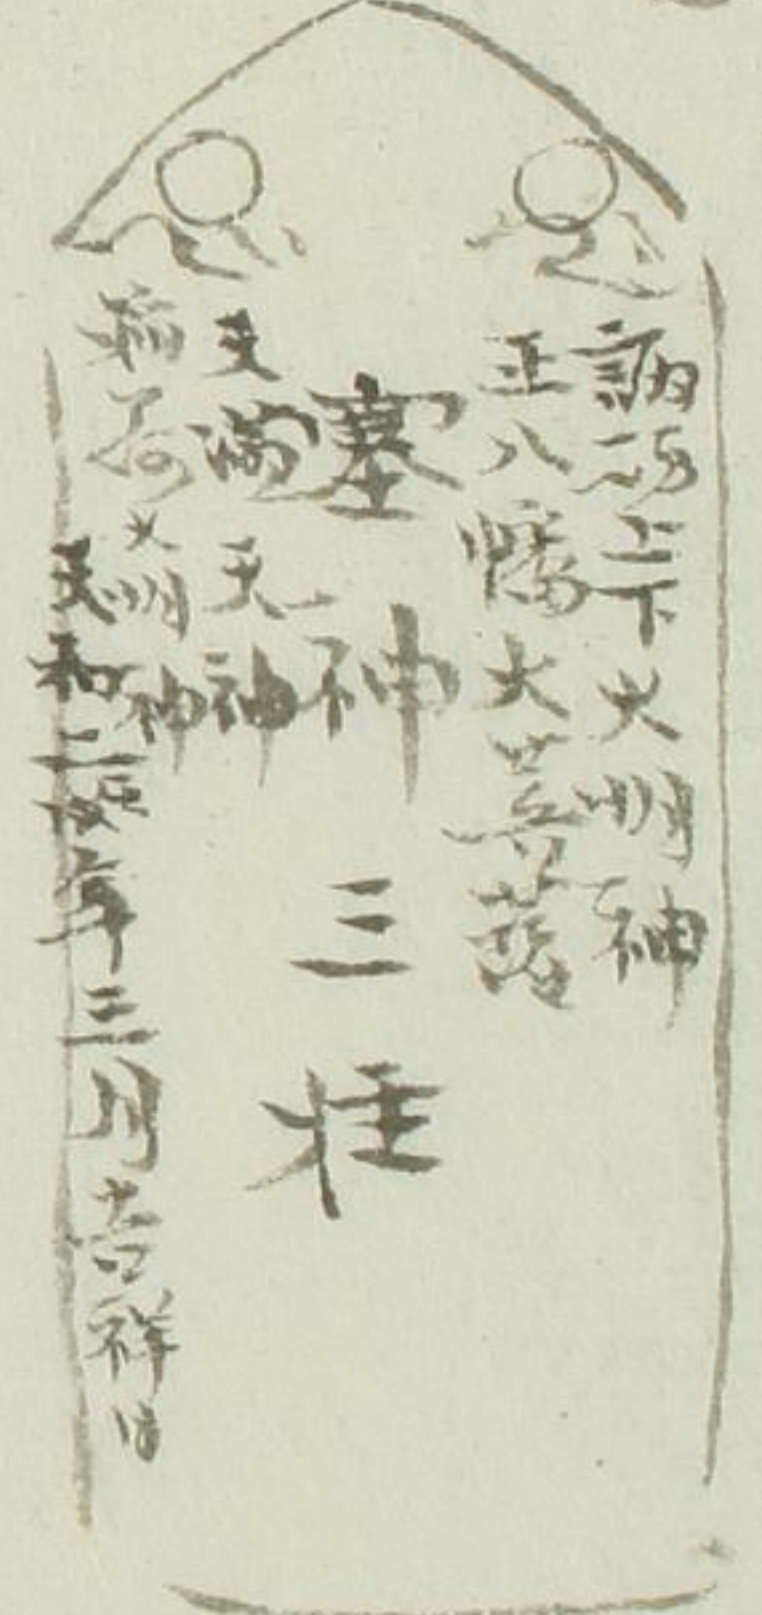 諏訪上下大明神
正八幡大菩薩
塞神三柱
天満天神
稲荷大明神
天和二年三月吉祥日